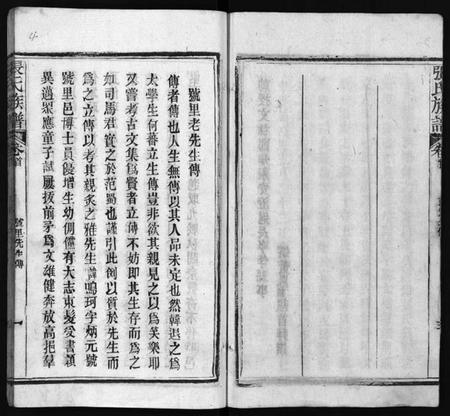 張氏族譜
卷首
號里老先生傳
傳者傳也人生無傳以其人品未定也然韓退之爲
太學生何蕃立生傳豈非欲其親見之以爲笑樂耶
又嘗考古文集爲賢者立傳不妨即其生存而爲之
如司馬君實之於范蜀也謹引此例以質於先生而
爲之立傳以考其親炙之雅先生諱鳴珂字炳元號
號里邑博士員優增生幼倜儻有大志束髮受書穎
異邁衆應童子試屢拔前矛爲文雄健奔放高挹羣
張氏族譜
卷首
號里先生傳
一